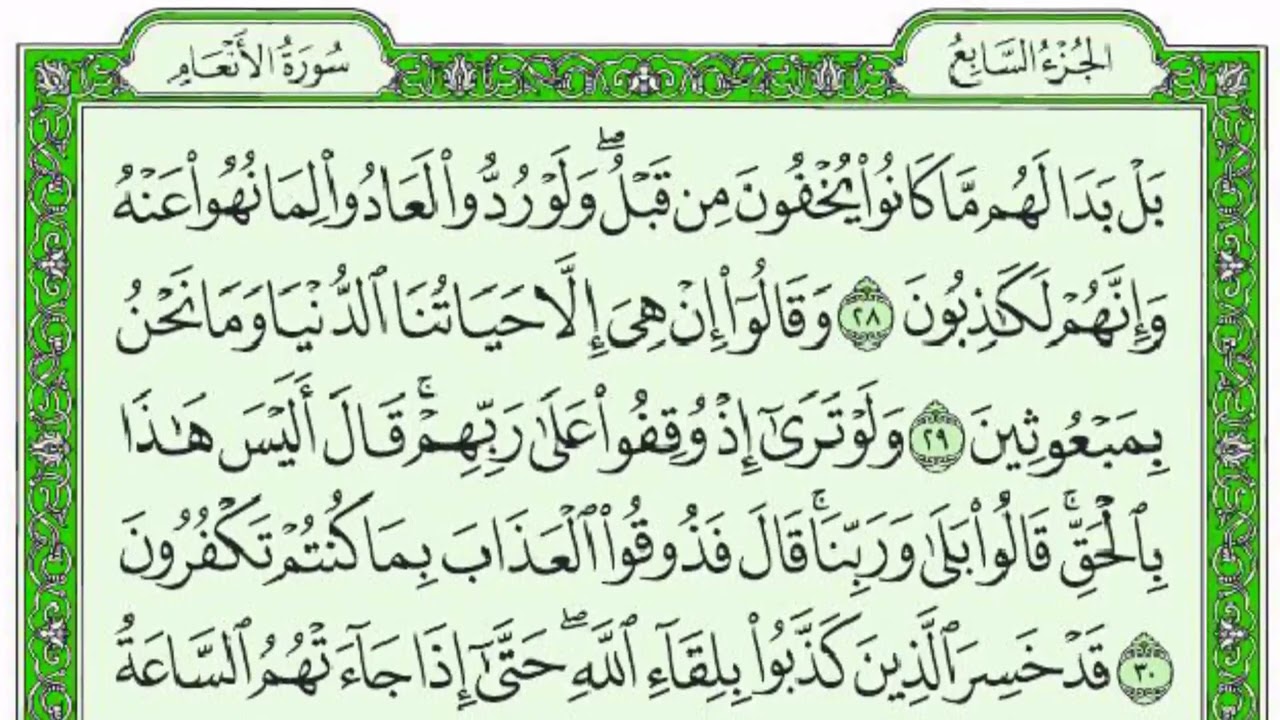 الجُزْءُ السَّابِعُ
سُورَةُ الأَنْعَامِ
بَلْ بَدَا لَهُم مَّا كَانُوا۟ يُخْفُونَ مِن قَبْلُ ۖ وَلَوْ رُدُّوا۟ لَعَادُوا۟ لِمَا نُهُوا۟ عَنْهُ
وَإِنَّهُمْ لَكَـٰذِبُونَ ٢٨ وَقَالُوٓا۟ إِنْ هِىَ إِلَّا حَيَاتُنَا ٱلدُّنْيَا وَمَا نَحْنُ
بِمَبْعُوثِينَ ٢٩ وَلَوْ تَرَىٰٓ إِذْ وُقِفُوا۟ عَلَىٰ رَبِّهِمْ ۚ قَالَ أَلَيْسَ هَـٰذَا
بِٱلْحَقِّ ۚ قَالُوا۟ بَلَىٰ وَرَبِّنَا ۚ قَالَ فَذُوقُوا۟ ٱلْعَذَابَ بِمَا كُنتُمْ تَكْفُرُونَ
٣٠ قَدْ خَسِرَ ٱلَّذِينَ كَذَّبُوا۟ بِلِقَآءِ ٱللَّهِ ۖ حَتَّىٰٓ إِذَا جَآءَتْهُمُ ٱلسَّاعَةُ